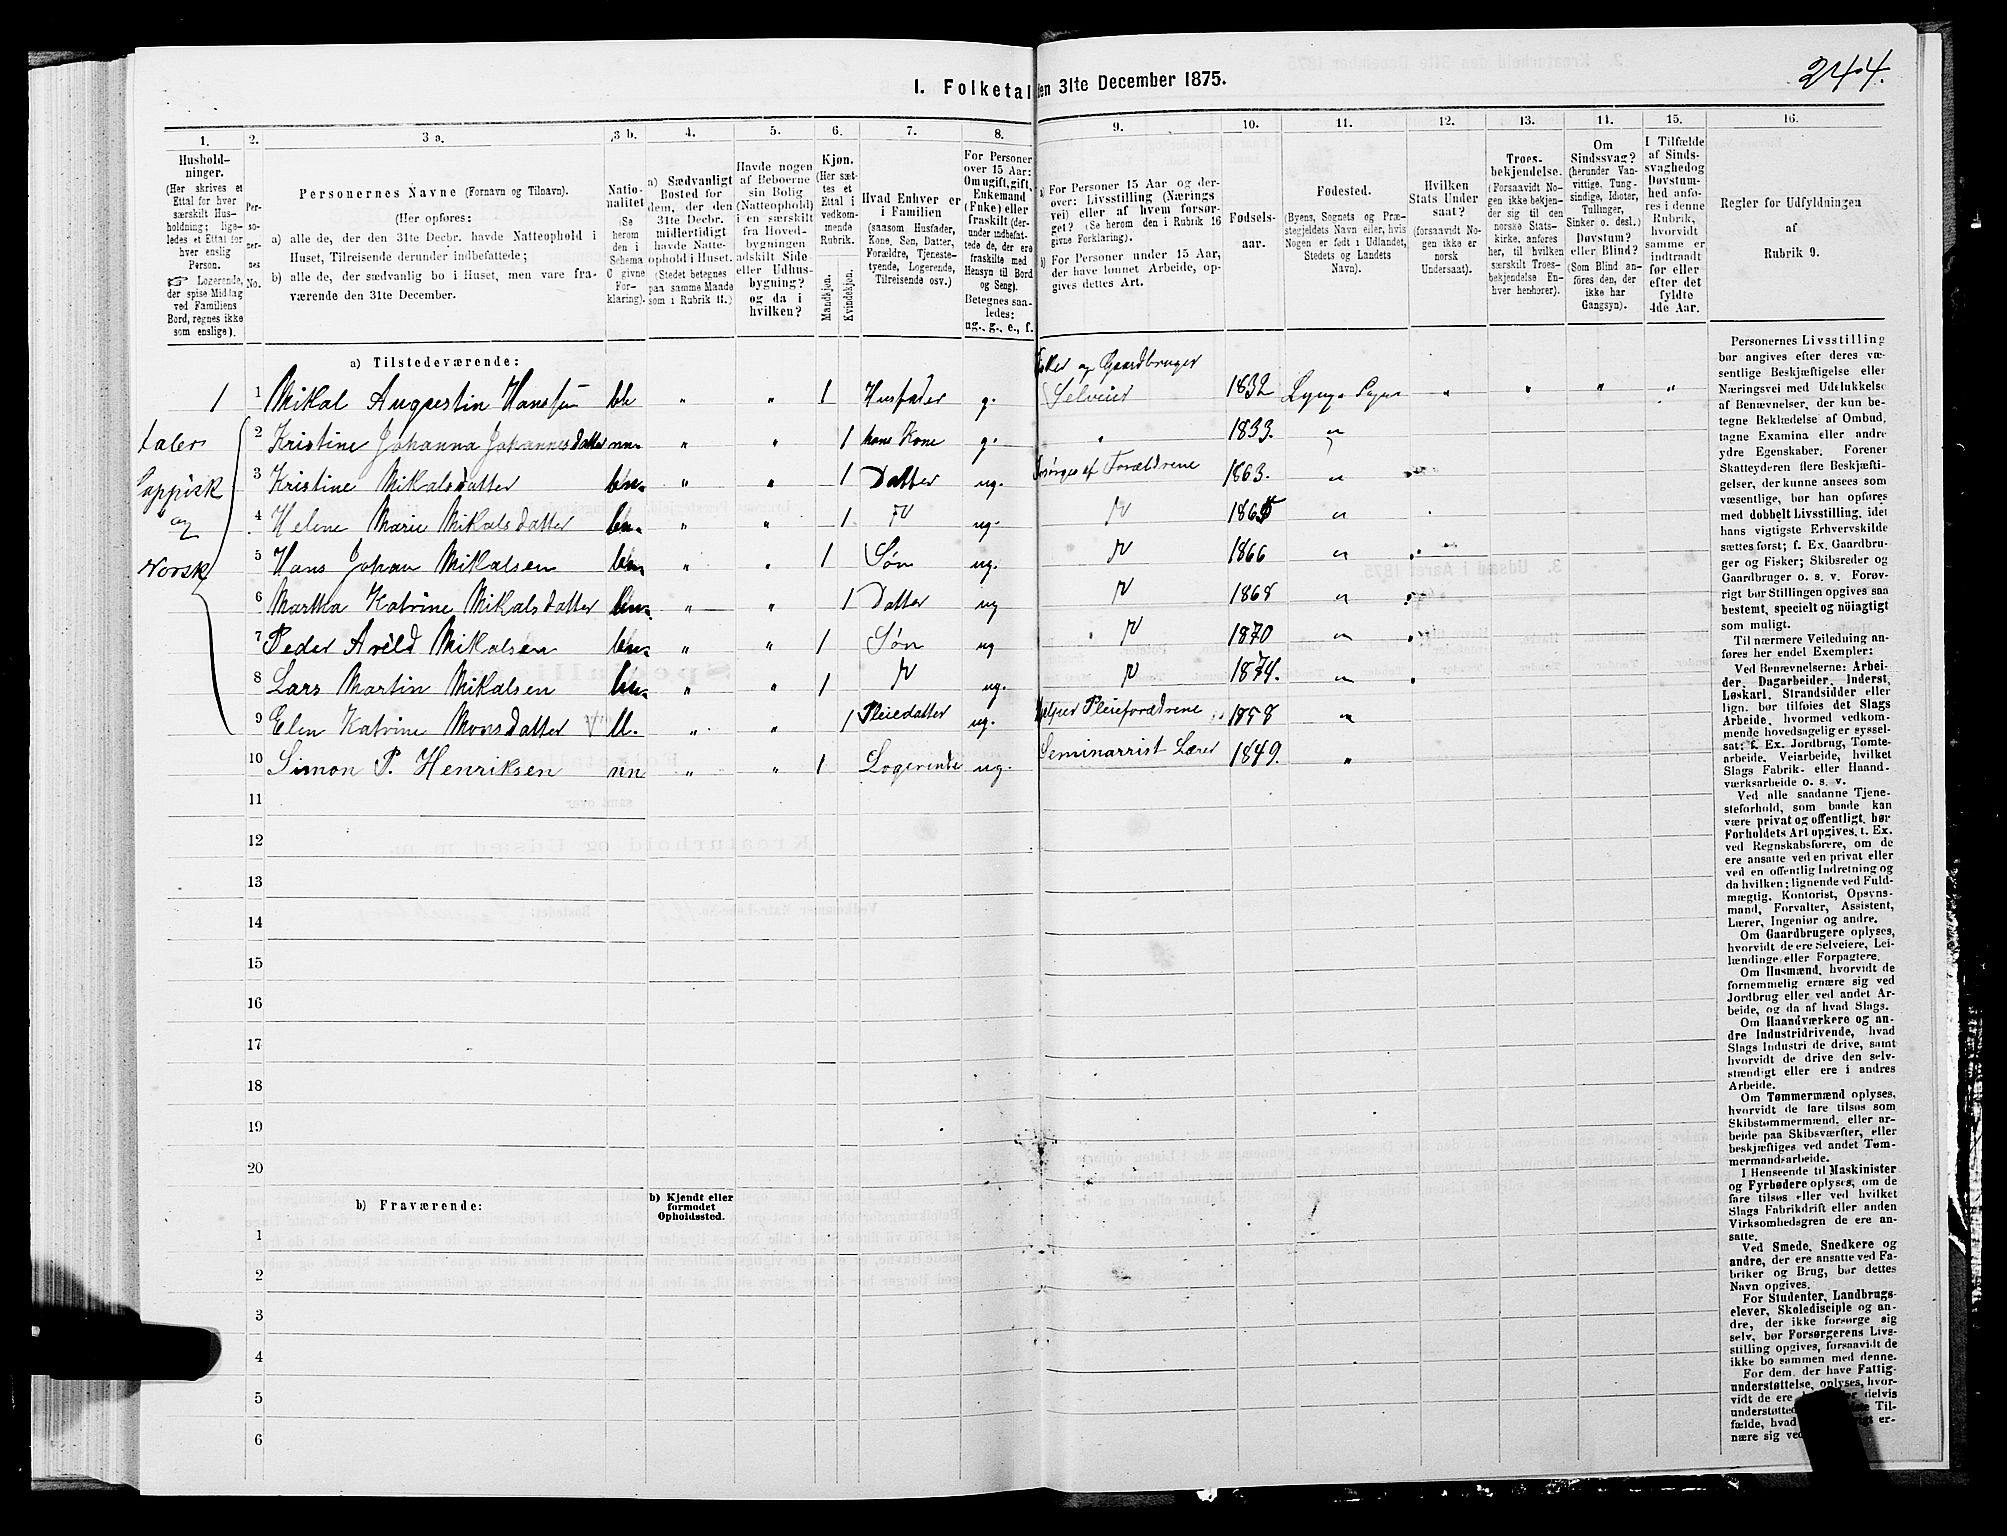 244.
I. Folketal den 31te December 1875.
1. 2. 3 a. 3 b. 4. 5. 6. 7. 8. 9. 10. 11. 12. 13. 14. 15. 16.
Hushold-
ninger.
(Her skrives et
Ettal for hver
særskilt Hus-
holdning; lige-
ledes et Ettal for
hver enslig
Person.
☞ Logerende,
der spise Middag
ved Familiens
Bord, regnes ikke
som enslige).
Per-
so-
ner-
nes
No.
Personernes Navne (Fornavn og Tilnavn).
(Her opføres:
a) alle de, der den 31te Decbr. havde Natteophold i
Huset, Tilreisende derunder indbefattede;
b) alle de, der sædvanlig bo i Huset, men vare fra-
værende den 31te December.
Natio-
nalitet
(Se
herom
den i
Schema
C givne
For-
klaring).
a) Sædvanligt
Bosted for
dem, der den
31te Decbr.
midlertidigt
havde Natte-
ophold i Huset.
(Stedet betegnes
paa samme Maade
som i Rubrik 11.)
Havde nogen
af Beboerne
sin Bolig
(Natteophold)
i en særskilt
fra Hoved-
bygningen
adskilt Side
eller Udhus-
bygning?
og da i
hvilken?
Kjøn.
(Her sæt-
tes et
Ettal i
vedkom-
mende
Rubrik.
Mandkjøn.
Kvindekjøn.
Hvad Enhver er
i Familien
(saasom Husfader,
Kone, Søn, Datter,
Forældre, Tjeneste-
tyende, Logerende,
Tilreisende osv.)
For Personer
over 15 Aar:
Om ugift, gift,
Enkemand
(Enke) eller
fraskilt (der-
under indbefat-
tede de, der ere
fraskilte med
Hensyn til Bord
og Seng).
Betegnes saa-
ledes:
ug., g., e., f.
a) For Personer 15 Aar og der-
over: Livsstilling (Nærings
vei) eller af hvem forsør-
get? (Se herom den i Rubrik 16
givne Forklaring).
b) For Personer under 15 Aar,
der have lønnet Arbeide, op-
gives dettes Art.
Fødsels-
aar.
Fødested.
(Byens, Sognets og Præ-
stegjeldets Navn eller, hvis
Nogen er født i Udlandet,
Stedets og Landets
Navn).
Hvilken
Stats Under
saat?
(forsaavidt No-
gen ikke er
norsk
Undersaat).
Troes-
bekjendelse.
(Forsaavidt No-
gen ikke bekjen-
der sig til den
norske Stats-
kirke, anføres
her, til hvilken
særskilt Troes-
bekjendelse En-
hver henhører).
Om
Sindssvag?
(herunder Van-
vittige, Tung-
sindige, Idioter,
Tullinger,
Sinker o. desl.)
Døvstum?
eller Blind?
(Som Blind an-
føres den, der
ikke har
Gangsyn).
I Tilfælde
af Sinds-
svaghed og
Døvstum-
hed anfø-
res i denne
Rubrik,
hvorvidt
samme er
indtraadt
før eller
efter det
fyldte
4de Aar.
Regler for Udfyldningen
af
Rubrik 9.
a) Tilstedeværende:
1 1 Mikal Augustin Hansen 1 Husfader g. og Gaardbruger Selveier 1832
taler
Lappisk
og
Norsk
2 Kristine Johanna Johannesdatter nn. " " 1 hans Kone g. " 1833. "
3 Kristine Mikalsdatter bn. " " 1 Datter ug. Forsørges af Forældrene 1863. "
4 Helene Marie Mikalsdatter bn. " " 1 " ug. " 1865 "
5 Hans Johan Mikalsen bn. " " 1 Søn ug. " 1866 "
6 Martha Katrine Mikalsdatter bn. " " 1 Datter ug " 1868 "
7 Peder Arild Mikalsen bn. " " 1 Søn ug " 1870 "
8 Lars Martin Mikalsen bn. " " 1 " ug. " 1874. "
9 Elen Katrine Monsdatter ll. " " 1 Pleiedatter ug. Pleieforældrene 1858 "
10 Simon P. Henriksen nn " " 1 Logerende ug. Seminarrist Lærer 1849. "
11
12
13
14
15
16
17
18
19
20
b) Fraværende:
b) Kjendt eller
formodet
Opholdssted.
1
2
3
4
5
6
Personernes Livsstilling
bør angives efter deres væ-
sentlige Beskjæftigelse eller
Næringsvei med Udelukkelse
af Benævnelser, der kun be-
tegne Beklædelse af Ombud,
tagne Examina eller andre
ydre Egenskaber. Forener
Skatteyderen flere Beskjæfti-
gelser, der kunne ansees som
væsentlige, bør han opføres
med dobbelt Livsstilling, idet
hans vigtigste Erhvervskilde
sættes først; f. Ex. Gaardbru-
ger og Fisker; Skibsreder og
Gaardbruger o. s. v. Forøv-
rigt bør Stillingen opgives saa
bestemt, specielt og nøiagtigt
som muligt.
Til nærmere Veiledning an-
føres her endel Exempler:
Ved Benævnelserne: Arbei-
der, Dagarbeider, Inderst,
Løskarl, Strandsidder eller
lign. bør tilføies det Slags
Arbeide, hvormed vedkom-
mende hovedsagelig er syssel-
sat; f. Ex. Jordbrug, Tomte-
arbeide, Veiarbeide, hvilket
Slags Fabrik- eller Haand-
værksarbeide o. s. v.
Ved alle saadanne Tjene-
steforhold, som baade kan
være privat og offentligt, bør
Forholdets Art opgives, t. Ex.
ved Regnskabsførere, om de
ere ansatte ved en privat eller
ved en offentlig Indretning og
da hvilken; lignende ved Fuld-
mægtig, Kontorist, Opsyns-
mand, Forvalter, Assistent,
Lærer, Ingeniør og andre.
Om Gaardbrugere oplyses,
hvorvidt de ere Selveiere, Lei-
lændinge eller Forpagtere.
Om Husmænd, hvorvidt de
fornemmelig ernære sig ved
Jordbrug eller ved andet Ar-
beide, og da af hvad Slags.
Om Haandværkere og an-
dre Industridrivende, hvad
Slags Industri de drive, samt
hvorvidt de drive den selv-
stændigt eller ere i andres
Arbeide.
Om Tømmermænd oplyses,
hvorvidt de fare tilsøs som
Skibstømmermænd, eller ar-
beide paa Skibsværfter, eller
beskjæftiges ved andet Tøm-
mermandsarbeide.
I Henseende til Maskinister
og Fyrbødere oplyses, om de
fare tilsøs eller ved hvilket
Slags Fabrikdrift eller anden
Virksomhedsgren de ere an-
satte.
Ved Smede, Snedkere og
andre, der ere ansatte ved Fa-
briker og Brug, bør dettes
Navn opgives.
For Studenter, Landbrugs-
elever, Skoledisciple og an-
dre, der ikke forsørge sig
selv, bør Forsørgerens Livs-
stilling opgives, forsaavidt de
ikke bo sammen med denne.
For dem, der have Fattig-
understøttelse, oplyses, hvor-
vidt de ere delvis
understøttede Til-
fælde, hvad er-
nære sig ved